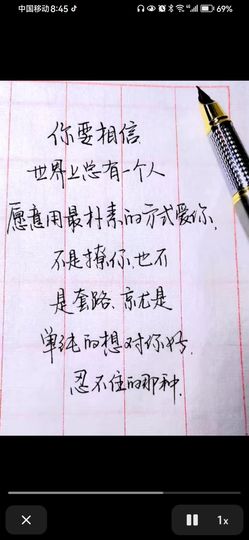 中国移动 8:45
4G 69%
你要相信
世界上总有一个人
愿意用最朴素的方式爱你,
不是撩你,也不
是套路、就是
单纯的想对你好,
忍不住的那种.
1x